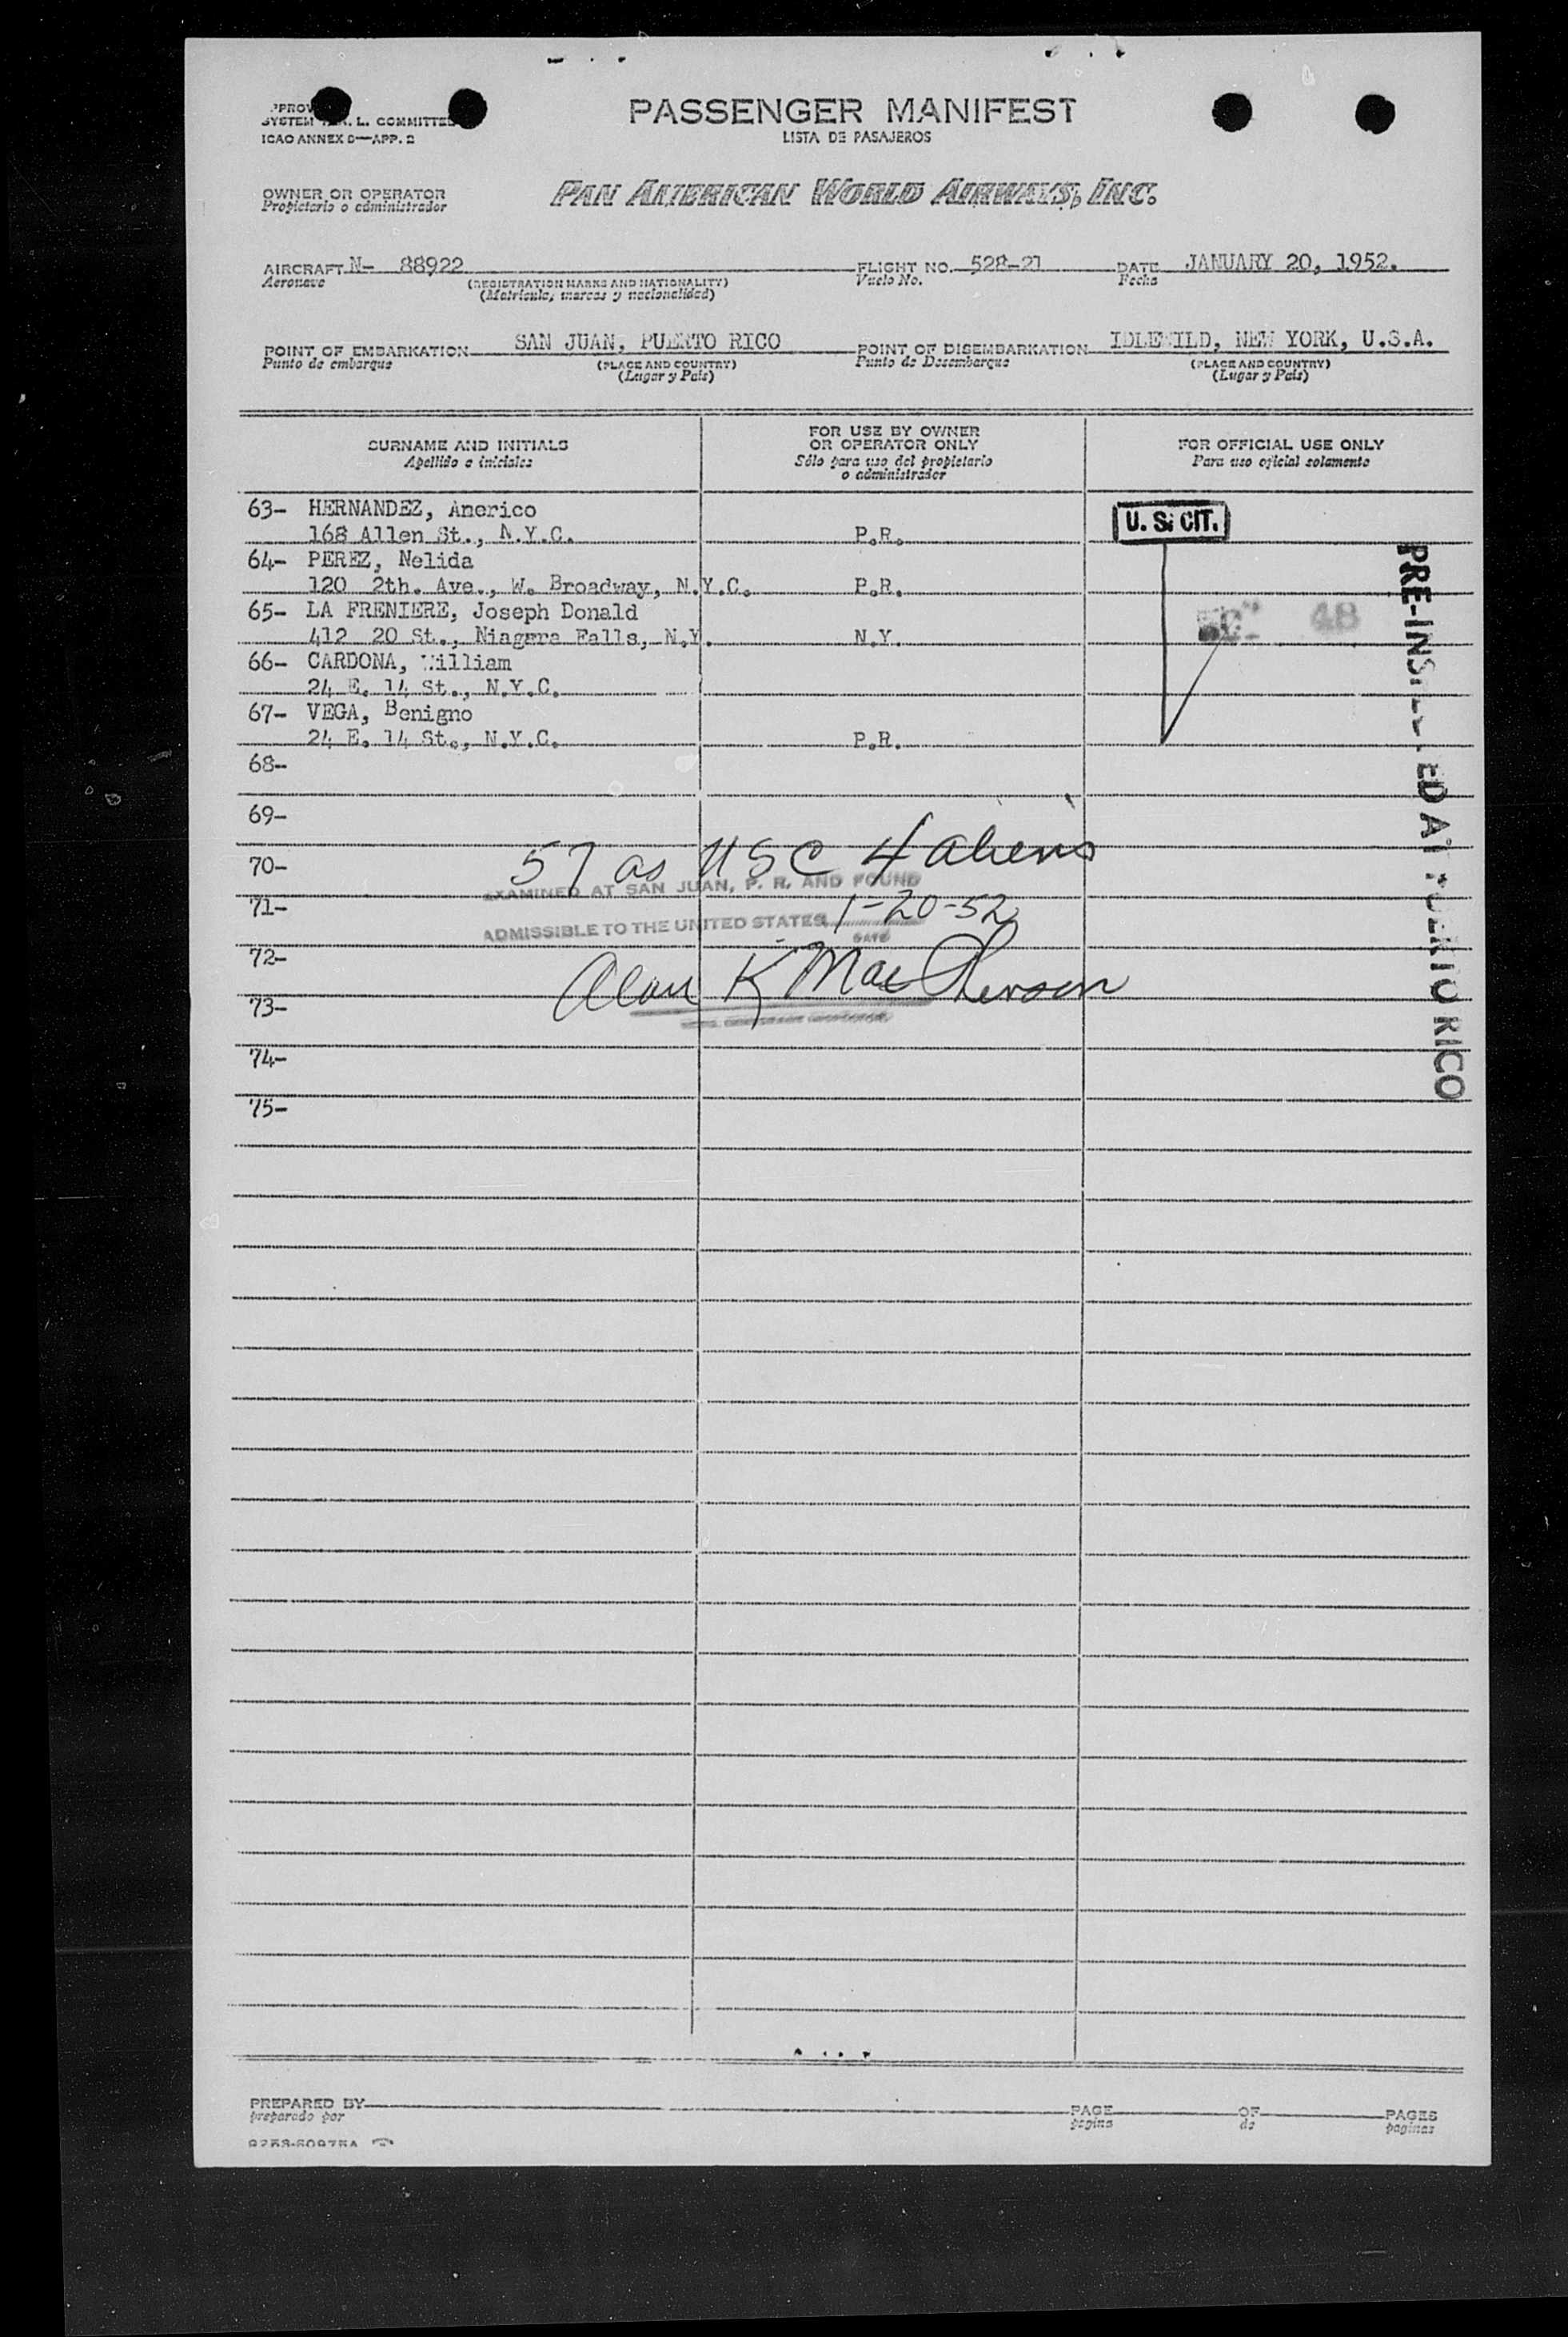 SYSTEM A. R. L. COMMITTEE
ICAO ANNEX 9—APP. 2
PASSENGER MANIFEST
LISTA DE PASAJEROS
OWNER OR OPERATOR
Propietario o administrador
PAN AMERICAN WORLD AIRWAYS, INC.
AIRCRAFT N- 88922 FLIGHT NO. 528-21 DATE JANUARY 20, 1952.
Aeronave (REGISTRATION MARKS AND NATIONALITY) Vuelo No. Fecha
(Matricula, marcas y nacionalidad)
POINT OF EMBARKATION SAN JUAN, PUERTO RICO POINT OF DISEMBARKATION IDLEWILD, NEW YORK, U.S.A.
Punto de embarque (PLACE AND COUNTRY) Punto de Desembarque (PLACE AND COUNTRY)
(Lugar y Pais) (Lugar y Pais)
SURNAME AND INITIALS
Apellido e iniciales
FOR USE BY OWNER
OR OPERATOR ONLY
Sólo para uso del propietario
o administrador
FOR OFFICIAL USE ONLY
Para uso oficial solamente
63- HERNANDEZ, Americo
168 Allen St., N.Y.C. P.R. U. S. CIT.
64- PEREZ, Nelida
120 2th. Ave., W. Broadway, N.Y.C. P.R.
65- LA FRENIERE, Joseph Donald 48
412 20 St., Niagara Falls, N.Y. N.Y.
66- CARDONA, William
24 E. 14 St., N.Y.C.
67- VEGA, Benigno
24 E. 14 St., N.Y.C. P.R.
68-
69-
70- 57 as USC 4 aliens
EXAMINED AT SAN JUAN, P. R. AND FOUND
71- 1-20-52
ADMISSIBLE TO THE UNITED STATES
DATE
72-
Alan K MacPherson
73-
74-
75-
PRE-INSPECTED AT PUERTO RICO
PREPARED BY PAGE OF PAGES
preparado por pagina de paginas